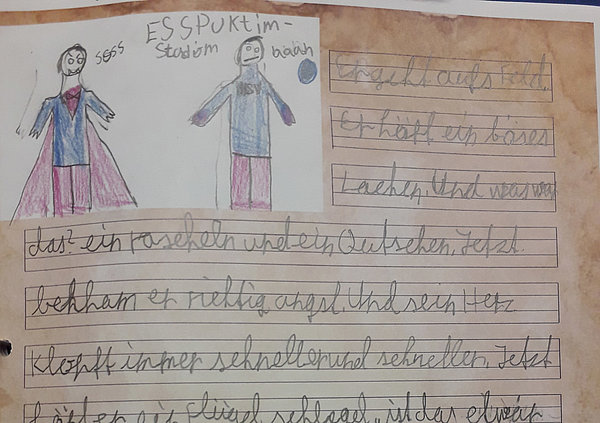 ESSPUKtim-
Stadiom
sass
wääh
HSV
Er geht aufs Feld.
Er hört ein böses
Lachen. Und was war
das? ein rascheln und ein Qutschen. Jetzt
bekham er richtig angst. Und sein Herz
Klopft immer schneller und schneller. Jetzt
ist das etwar